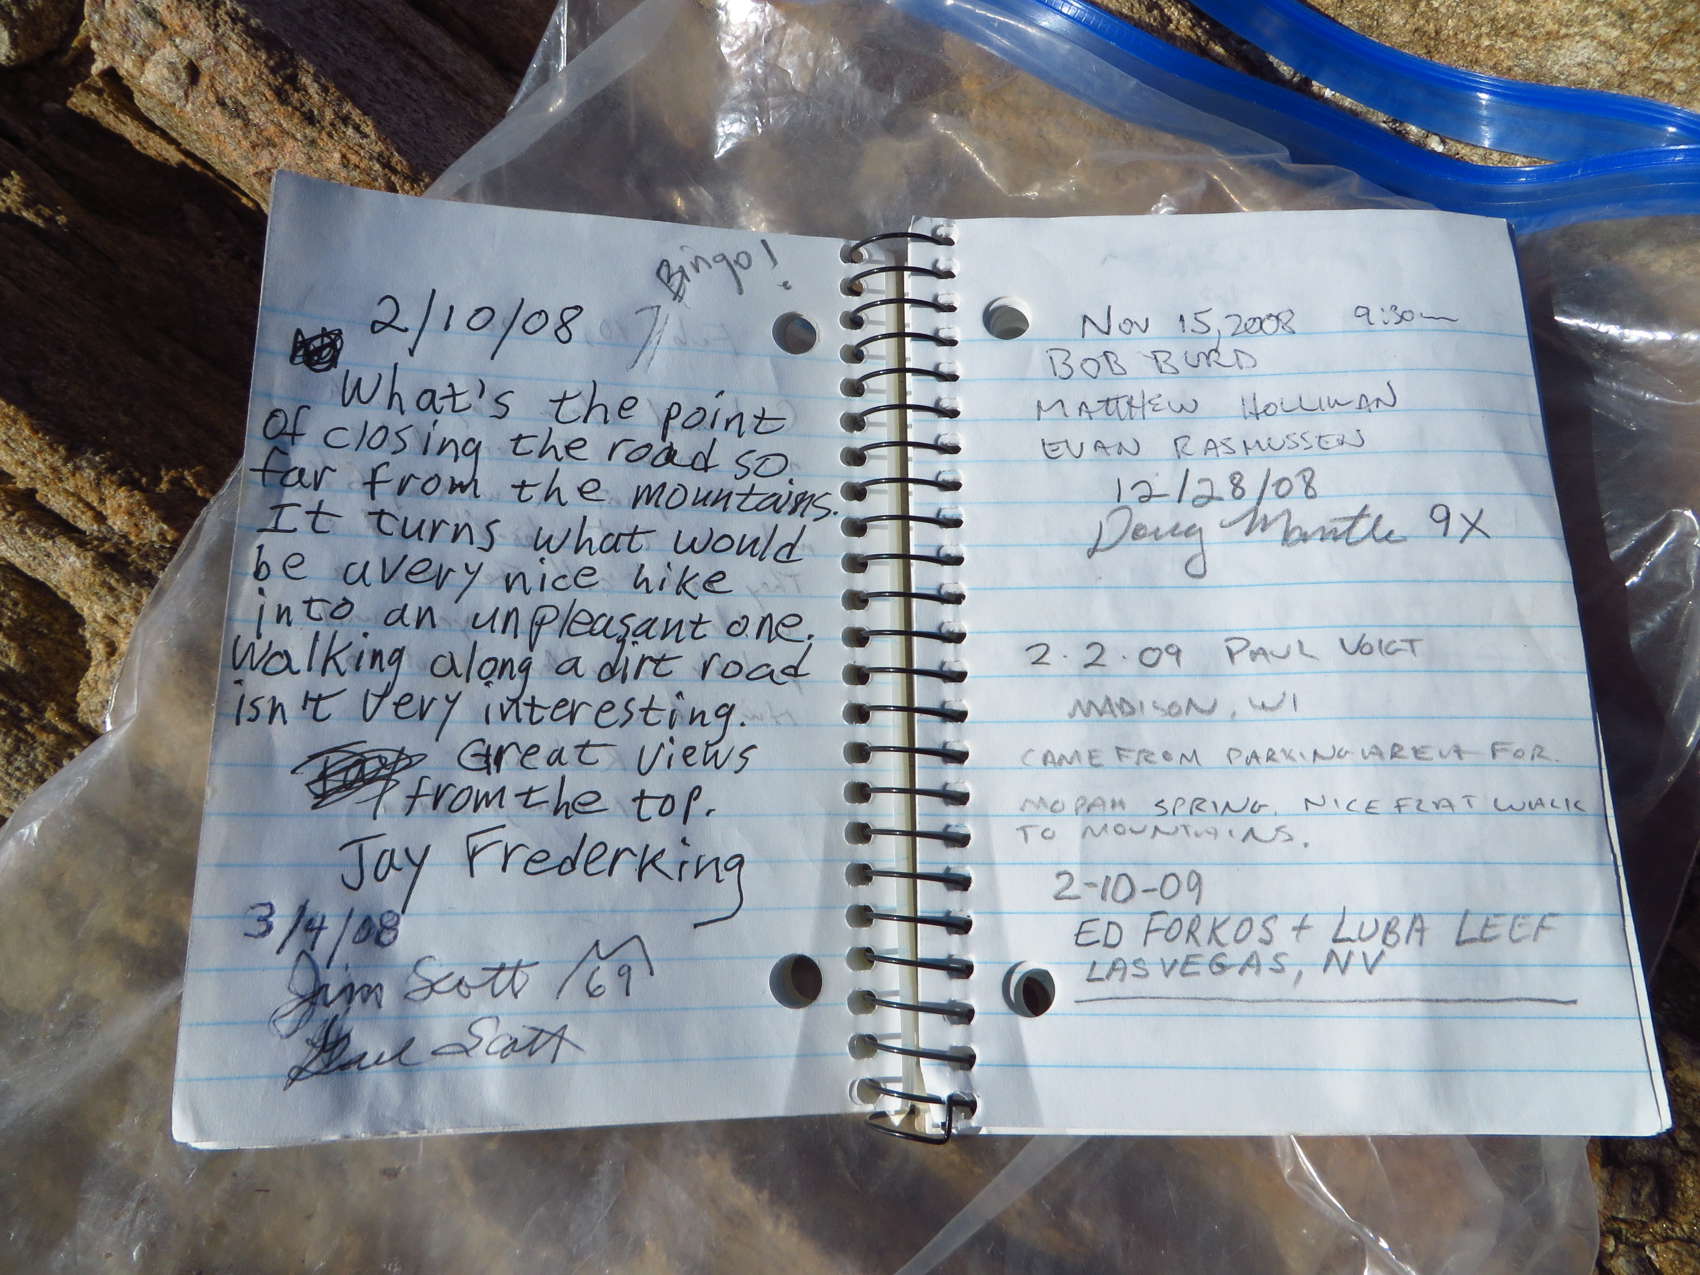 Bingo!
2/10/08
What's the point
of closing the road so
far from the mountains.
It turns what would
be a very nice hike
into an unpleasant one.
Walking along a dirt road
isn't very interesting.
Great views
from the top.
Jay Frederking
3/4/08
Jim Scott 69
Scott
Nov 15, 2008 9:30am
BOB BURD
MATTHEW HOLLIMAN
EVAN RASMUSSEN
12/28/08
Doug Mantle 9X
2.2.09 PAUL VOIGT
MADISON, WI
CAME FROM PARKING AREA FOR
MOPAH SPRING. NICE FLAT WALK
TO MOUNTAINS.
2-10-09
ED FORKOS + LUBA LEEF
LAS VEGAS, NV